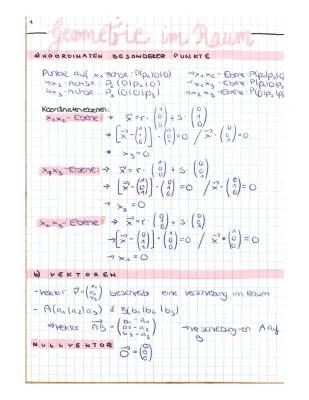 1
Geometrie im Raum
a) KOORDINATEN BESONDERER PUNKTE
Punkte auf x₁-Achse: P(p₁|0|0) → x₁x₂-Ebene: P(p₁|p₂|0)
↳ x₂-Achse: P₂(0|p₂|0) ↳ x₁x₃-Ebene: P(p₁|0|p₃)
↳ x₃-Achse: P₃(0|0|p₃) ↳ x₂x₃-Ebene: P(0|p₂|p₃)
Koordinatenebenen:
x₁x₂-Ebene → x⃗ = r · (1 0 0) + s · (0 1 0)
→ [x⃗ - (0 0 0)] · (0 0 1) = 0 / x⃗ · (0 0 1) = 0
→ x₃ = 0
x₁x₃-Ebene → x⃗ = r · (1 0 0) + s · (0 0 1)
→ [x⃗ - (0 0 0)] · (0 1 0) = 0 / x⃗ · (0 1 0) = 0
→ x₂ = 0
x₂x₃-Ebene → x⃗ = r · (0 1 0) + s · (0 0 1)
→ [x⃗ - (0 0 0)] · (1 0 0) = 0 / x⃗ · (1 0 0) = 0
→ x₁ = 0
b) VEKTOREN
- Vektor v⃗ = (v₁ v₂ v₃) beschreibt eine Verschiebung im Raum
- A(a₁|a₂|a₃) & B(b₁|b₂|b₃)
→ Vektor AB⃗ = (b₁-a₁ b₂-a₂ b₃-a₃) → Verschiebung von A auf B
NULLVEKTOR
O⃗ = (0 0 0)